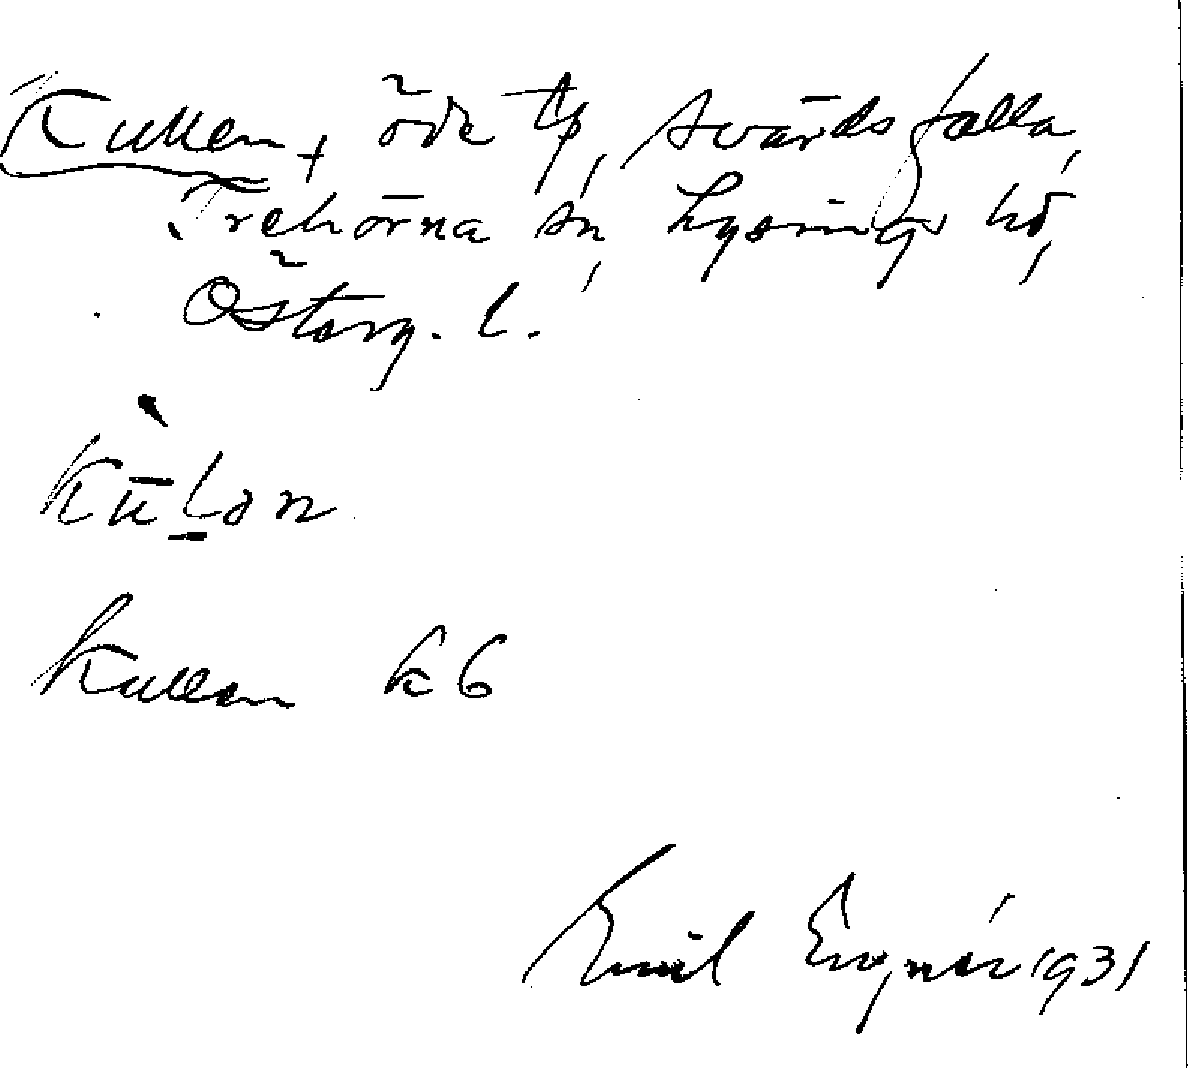 Kullen, öde tp, Svärdsfalla,
Trehörna sn, Lysings hd,
Österg. l.
kūlan
Kullen k6
Emil 1931